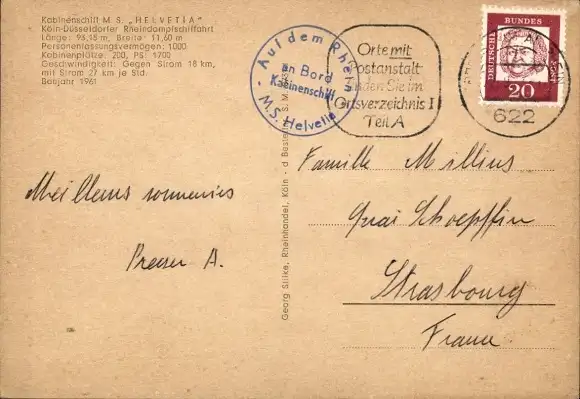 Kabinenschiff M S „HELVETIA"
Köln-Düsseldorfer Rheindampfschiffahrt
Länge: 93,18 m, Breite 11,60 m
Personenfassungsvermögen: 1000
Kabinenplätze: 200, PS: 1700
Geschwindigkeit: Gegen Strom 18 km,
mit Strom 27 km je Std.
Baujahr 1961
Auf dem Rhein
an Bord
Kabinenschiff
- M.S. Helvetia -
Orte mit
Postanstalt
finden Sie im
Ortsverzeichnis I
Teil A
DEUTSCHE
BUNDES
POST
20
622
Georg Stilke, Rheinhandel, Köln - d
Meilleurs souvenirs
A.
Famille Millius
Quai Schoepflin
Strasbourg
France